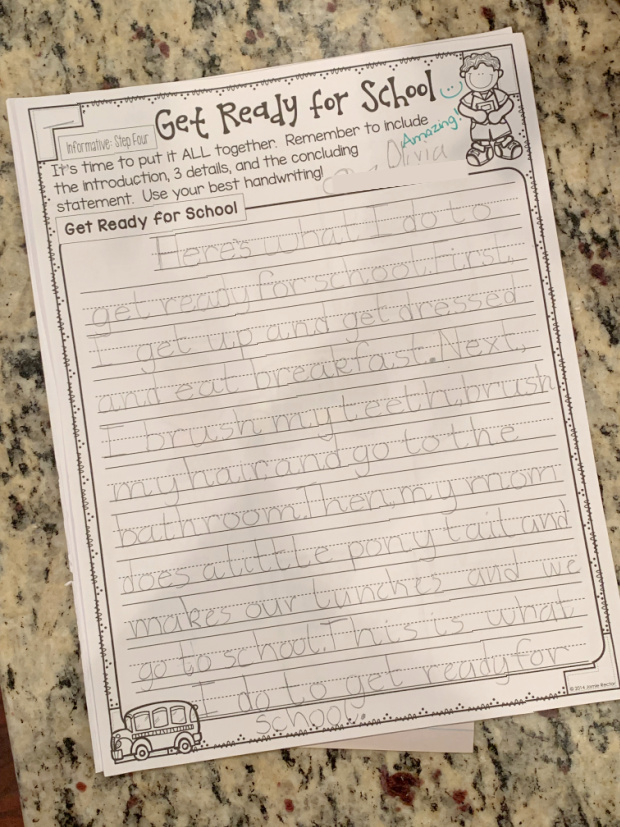 Get Ready for School
Informative: Step Four
It's time to put it ALL together. Remember to include
the introduction, 3 details, and the concluding
statement. Use your best handwriting!
Amazing!
Olivia
Get Ready for School
Here's what I do to
get ready for school. First,
I get up and get dressed
and eat breakfast. Next,
I brush my teeth, brush
my hair and go to the
bathroom. Then, my mom
does a little pony tail and
makes our lunches and we
go to school. This is what
I do to get ready for
school.